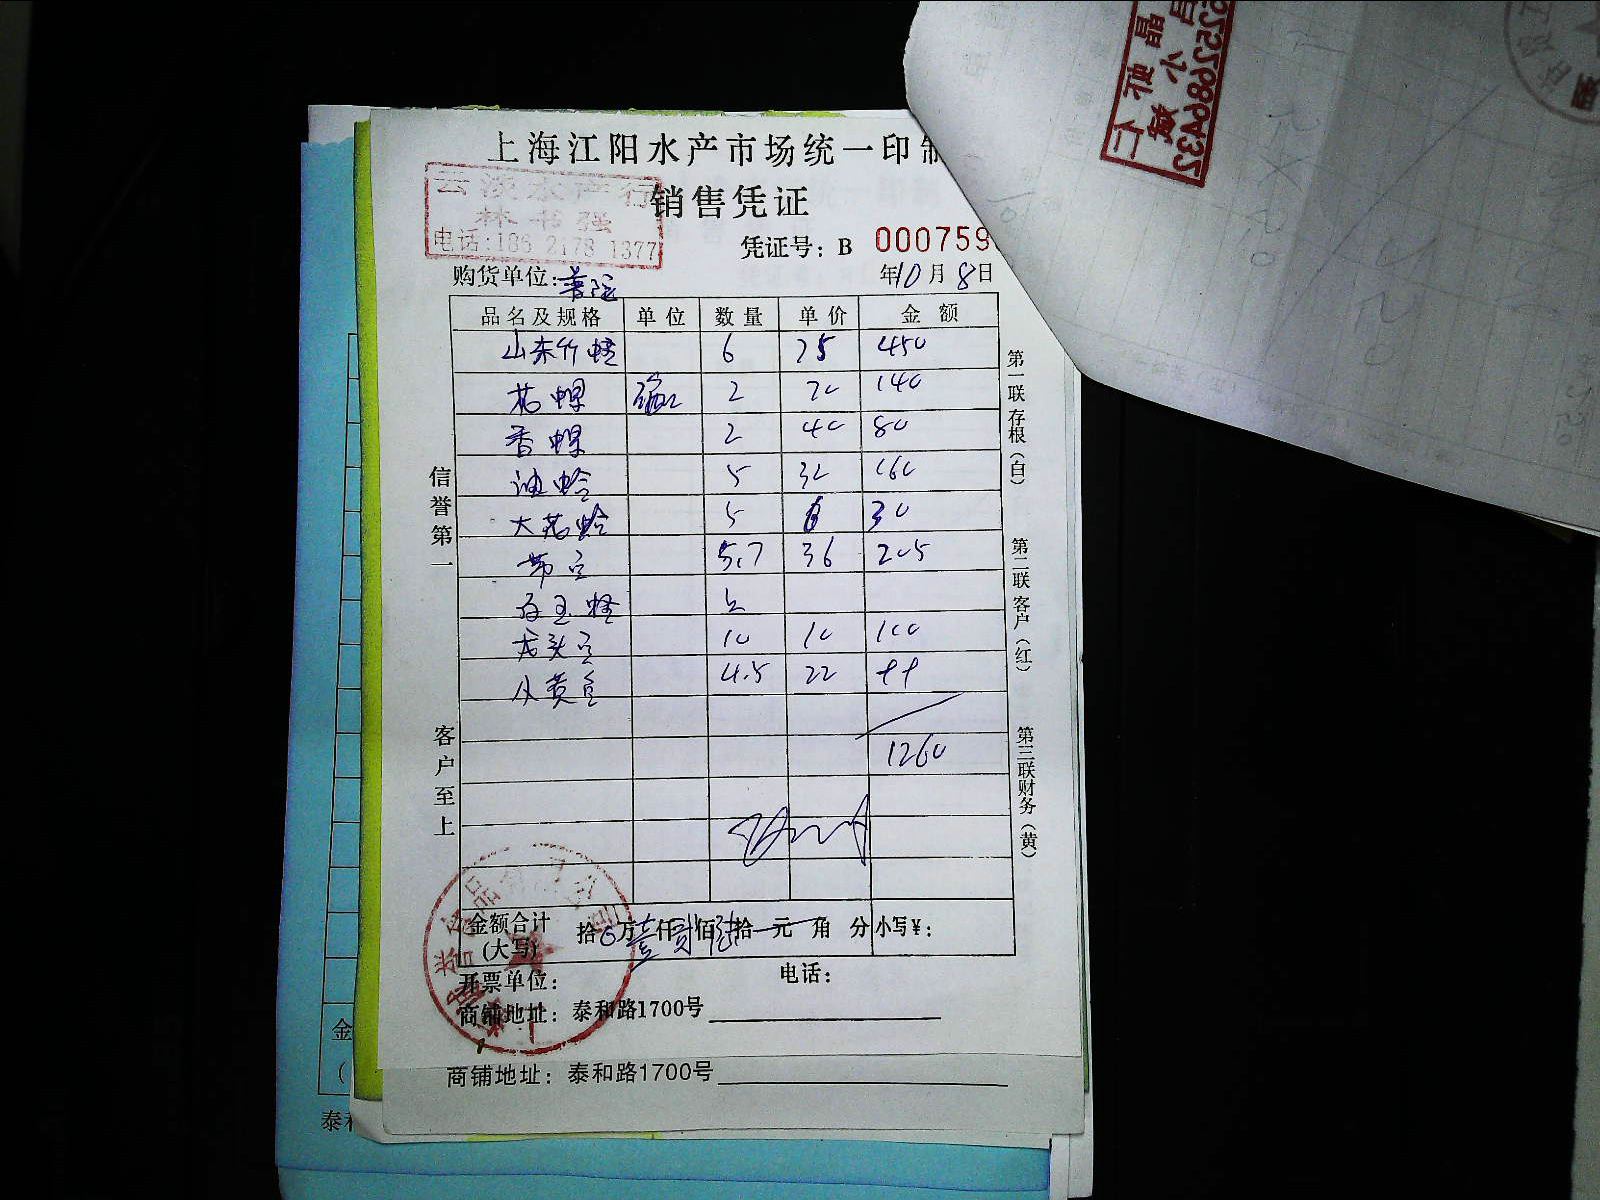 上海江阳水产市场统一印制
云波水产行
林书强
电话:186 2178 1377
销售凭证
凭证号: B 000759
购货单位: 普陀
年10月8日
品名及规格 单位 数量 单价 金额
山东竹蛏 6 75 450
花螺 2 70 140
香螺 2 40 80
油蛤 5 32 160
大花蛤 5 6 30
带鱼 5.7 36 205
白玉蛏 5
龙头鱼 10 10 100
小黄鱼 4.5 22 99
1260
信誉第一
客户至上
第一联存根(白)
第二联客户(红)
第三联财务(黄)
金额合计(大写) 拾0万壹仟贰佰陆拾元角分 小写¥:
开票单位: 电话:
商铺地址: 泰和路1700号
商铺地址: 泰和路1700号